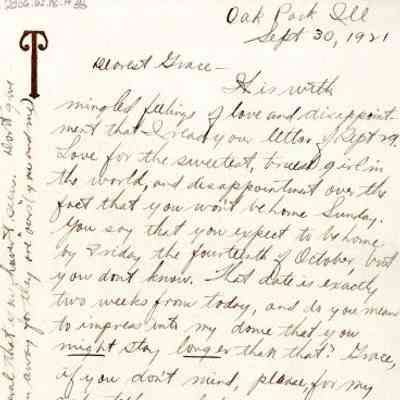 2006.02.18.A
T
Oak Park Ill
Sept 30, 1921
Dearest Grace —
It is with
mingled feelings of love and disappoint-
ment that I read your letter of Sept 29.
Love for the sweetest, truest girl in
the world, and disappointment over the
fact that you won't be home Sunday.
You say that you expect to be home
by Friday the fourteenth of October, but
you don't know. That date is exactly
two weeks from today, and do you mean
to impress into my dome that you
might stay longer than that? Grace,
if you don't mind, please, for my
seen. Don't give
away for they are ours (you and me)